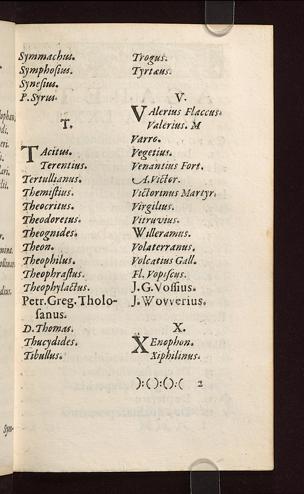 Symmachus.
Symphosius.
Synesius.
P. Syrus.
T.
Tacitus.
Terentius.
Tertullianus.
Themistius.
Theocritus.
Theodoretus.
Theognides.
Theon.
Theophilus.
Theophrastus.
Theophylactus.
Petr. Greg. Tholo-
sanus.
D. Thomas.
Thucydides.
Tibullus.
Trogus.
Tyrtæus.
V.
Valerius Flaccus.
Valerius. M
Varro.
Vegetius.
Venantius Fort.
A. Victor.
Victorinus Martyr.
Virgilius.
Vitruvius.
Willeramus.
Volaterranus.
Volcatius Gall.
Fl. Vopiscus.
J. G. Vossius.
J. Wovverius.
X.
Xenophon.
Xiphilinus.
):( ):( ):( 2
Syn-